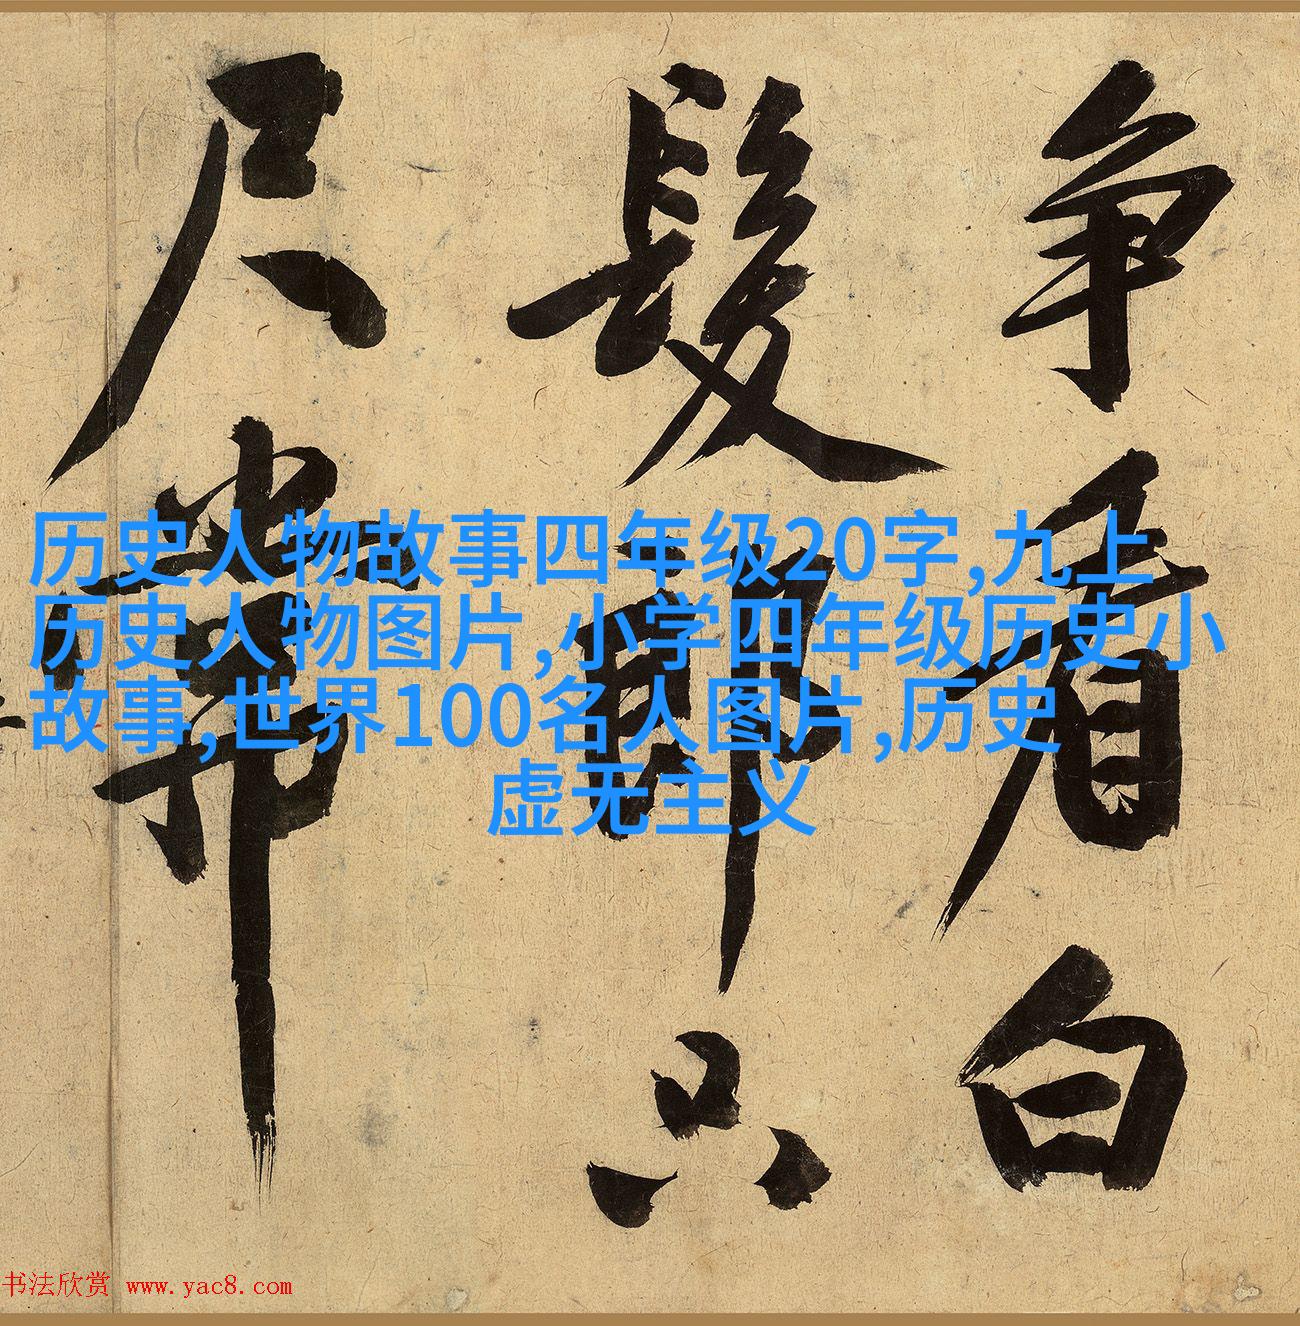 争看白
髮郎只
尺常
历史人物故事四年级20字,九上
历史人物图片,小学四年级历史小
故事,世界100名人图片,历史
虚无主义
书法欣赏 www.yac8.com